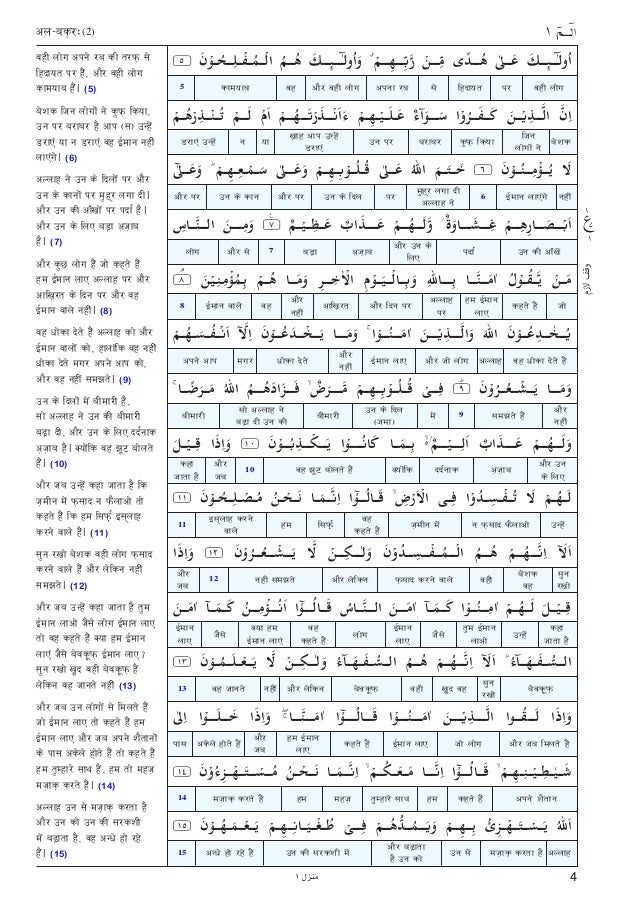 अल-बक़रः (2)
الٓـمّٓ ١
वही लोग अपने रब की तरफ़ से
हिदायत पर हैं, और वही लोग
कामयाब हैं। (5)
बेशक जिन लोगों ने कुफ़्र किया,
उन पर बराबर है आप (स) उन्हें
डराएं या न डराएं वह ईमान नहीं
लाएंगे। (6)
अल्लाह ने उन के दिलों पर और
उन के कानों पर मुह्र लगा दी।
और उन की आँखों पर पर्दा है।
और उन के लिए बड़ा अ़ज़ाब
है। (7)
और कुछ लोग हैं जो कहते हैं
हम ईमान लाए अल्लाह पर और
आख़िरत के दिन पर और वह
ईमान वाले नहीं। (8)
वह धोका देते हैं अल्लाह को और
ईमान वालों को, हालांकि वह नहीं
धोका देते मगर अपने आप को,
और वह नहीं समझते। (9)
उन के दिलों में बीमारी है,
सो अल्लाह ने उन की बीमारी
बढ़ा दी, और उन के लिए दर्दनाक
अ़ज़ाब है। क्योंकि वह झूट बोलते
हैं। (10)
और जब उन्हें कहा जाता है कि
ज़मीन में फ़साद न फैलाओ तो
कहते हैं कि हम सिर्फ़ इस्लाह
करने वाले हैं। (11)
सुन रखो बेशक वही लोग फ़साद
करने वाले हैं और लेकिन नहीं
समझते। (12)
और जब उन्हें कहा जाता है तुम
ईमान लाओ जैसे लोग ईमान लाए
तो वह कहते हैं क्या हम ईमान
लाएं जैसे बेवकूफ़ ईमान लाए?
सुन रखो खुद वही बेवकूफ़ हैं
लेकिन वह जानते नहीं (13)
और जब उन लोगों से मिलते हैं
जो ईमान लाए तो कहते हैं हम
ईमान लाए और जब अपने शैतानों
के पास अकेले होते हैं तो कहते हैं
हम तुम्हारे साथ हैं, हम तो महज़
मज़ाक़ करते हैं। (14)
अल्लाह उन से मज़ाक़ करता है
और उन को उन की सरकशी
में बढ़ाता है, वह अन्धे हो रहे
हैं। (15)
اُولٰٓئِكَ عَلٰى هُدًى مِّنْ رَّبِّهِمْ ۗ وَاُولٰٓئِكَ هُمُ الْمُفْلِحُوْنَ ٥
5 कामयाब वह और वही लोग अपना रब से हिदायत पर वही लोग
اِنَّ الَّذِيْنَ كَفَرُوْا سَوَآءٌ عَلَيْهِمْ ءَاَنْذَرْتَهُمْ اَمْ لَمْ تُنْذِرْهُمْ
डराएं उन्हें न या ख़ाह आप उन्हें डराएं उन पर बराबर कुफ़्र किया जिन लोगों ने बेशक
لَا يُؤْمِنُوْنَ ٦ خَتَمَ اللّٰهُ عَلٰى قُلُوْبِهِمْ وَعَلٰى سَمْعِهِمْ ۗ وَعَلٰٓى
और पर उन के कान और पर उन के दिल पर मुह्र लगा दी अल्लाह ने 6 ईमान लाएंगे नहीं
اَبْصَارِهِمْ غِشَاوَةٌ ۖ وَّلَهُمْ عَذَابٌ عَظِيْمٌ ٧ وَمِنَ النَّاسِ
लोग और से 7 बड़ा अ़ज़ाब और उन के लिए पर्दा उन की आँखें
مَنْ يَّقُوْلُ اٰمَنَّا بِاللّٰهِ وَبِالْيَوْمِ الْاٰخِرِ وَمَا هُمْ بِمُؤْمِنِيْنَ ٨
8 ईमान वाले वह और नहीं आख़िरत और दिन पर अल्लाह पर हम ईमान लाए कहते हैं जो
يُخٰدِعُوْنَ اللّٰهَ وَالَّذِيْنَ اٰمَنُوْا ۚ وَمَا يَخْدَعُوْنَ اِلَّآ اَنْفُسَهُمْ
अपने आप मगर धोका देते और नहीं ईमान लाए और जो लोग अल्लाह वह धोका देते हैं
وَمَا يَشْعُرُوْنَ ٩ فِىْ قُلُوْبِهِمْ مَّرَضٌ ۙ فَزَادَهُمُ اللّٰهُ مَرَضًا ۚ
बीमारी सो अल्लाह ने बढ़ा दी उन की बीमारी उन के दिल (जमा) में 9 समझते हैं और नहीं
وَلَهُمْ عَذَابٌ اَلِيْمٌ ۙ بِمَا كَانُوْا يَكْذِبُوْنَ ١٠ وَاِذَا قِيْلَ
कहा जाता है और जब 10 वह झूट बोलते हैं क्योंकि दर्दनाक अ़ज़ाब और उन के लिए
لَهُمْ لَا تُفْسِدُوْا فِى الْاَرْضِ ۙ قَالُوْٓا اِنَّمَا نَحْنُ مُصْلِحُوْنَ ١١
11 इस्लाह करने वाले हम सिर्फ़ वह कहते हैं ज़मीन में न फ़साद फैलाओ उन्हें
اَلَآ اِنَّهُمْ هُمُ الْمُفْسِدُوْنَ وَلٰكِنْ لَّا يَشْعُرُوْنَ ١٢ وَاِذَا
और जब 12 नहीं समझते और लेकिन फ़साद करने वाले वही बेशक वह सुन रखो
قِيْلَ لَهُمْ اٰمِنُوْا كَمَآ اٰمَنَ النَّاسُ قَالُوْٓا اَنُؤْمِنُ كَمَآ اٰمَنَ
ईमान लाए जैसे क्या हम ईमान लाएं वह कहते हैं लोग ईमान लाए जैसे तुम ईमान लाओ उन्हें कहा जाता है
السُّفَهَآءُ ۗ اَلَآ اِنَّهُمْ هُمُ السُّفَهَآءُ وَلٰكِنْ لَّا يَعْلَمُوْنَ ١٣
13 वह जानते नहीं और लेकिन बेवकूफ़ वही खुद वह सुन रखो बेवकूफ़
وَاِذَا لَقُوا الَّذِيْنَ اٰمَنُوْا قَالُوْٓا اٰمَنَّا ۖ وَاِذَا خَلَوْا اِلٰى
पास अकेले होते हैं और जब हम ईमान लाए कहते हैं ईमान लाए जो लोग और जब मिलते हैं
شَيٰطِيْنِهِمْ ۙ قَالُوْٓا اِنَّا مَعَكُمْ ۙ اِنَّمَا نَحْنُ مُسْتَهْزِءُوْنَ ١٤
14 मज़ाक़ करते हैं हम महज़ तुम्हारे साथ हम कहते हैं अपने शैतान
اَللّٰهُ يَسْتَهْزِئُ بِهِمْ وَيَمُدُّهُمْ فِىْ طُغْيَانِهِمْ يَعْمَهُوْنَ ١٥
15 अन्धे हो रहे हैं उन की सरकशी में और बढ़ाता है उन को उन से मज़ाक़ करता है अल्लाह
ع
وقف لازم
منزل ١
4